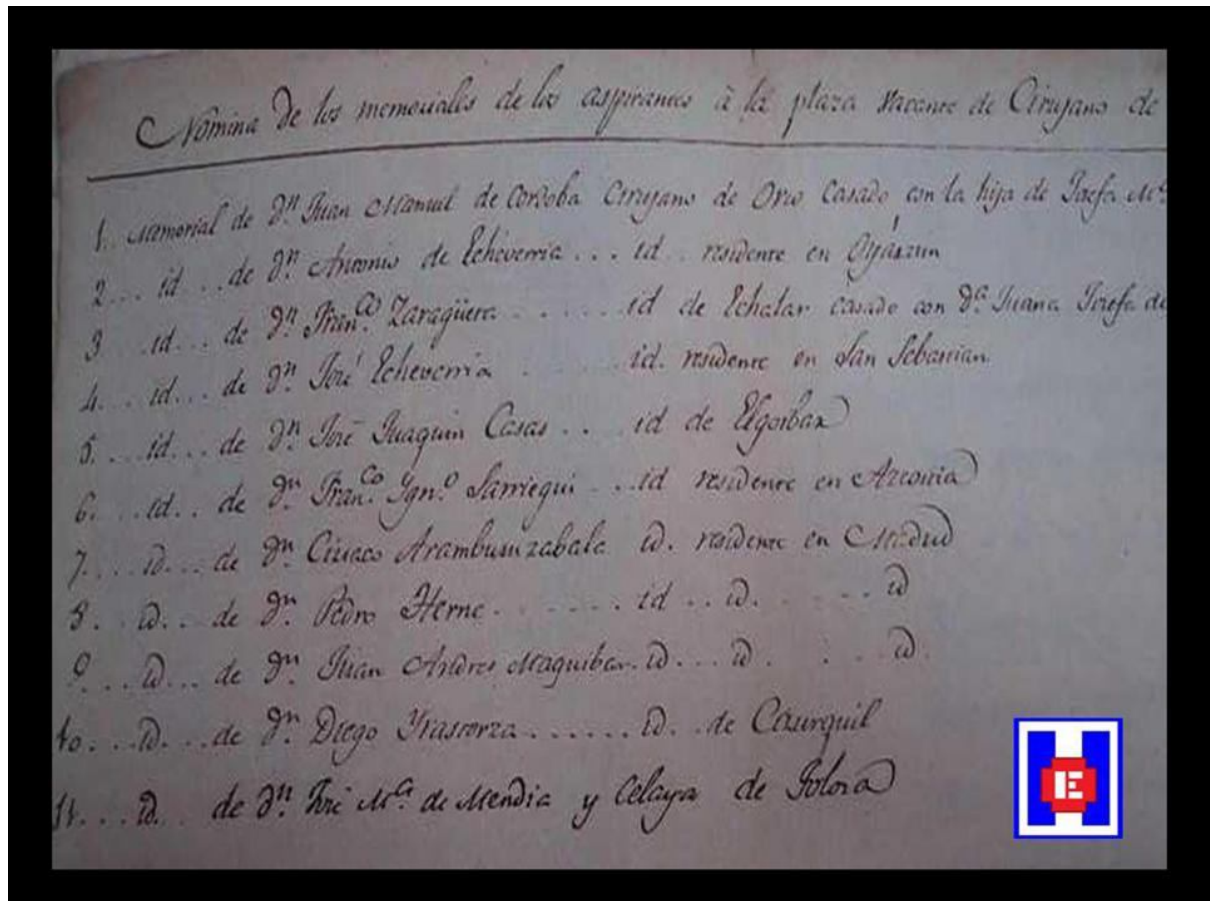 Nómina de los memoriales de los aspirantes à la plaza vacante de Cirujano de
1. Memorial de Dn. Juan Manuel de Cordoba Cirujano de Orio Casado con la hija de Josefa Ma.
2... id... de Dn. Antonio de Echeverria... id.. residente en Oyárzun
3 .. id... de Dn. Franco. Zaragüera...... id de Echalar casado con Da. Juana Josefa de
4... id... de Dn. José Echeverria...... id. residente en San Sebastian.
5... id... de Dn. José Juaquin Casas.. id de Elgoibar
6... id.. de Dn. Franco. Ygno. Sarriegui... id residente en Azcoitia
7... id... de Dn. Ciriaco Aramburuzabala id. residente en Madrid
8.. id.. de Dn. Pedro Herne....... id.. id..... id
9... id... de Dn. Juan Andres Maguibar. id... id.... id.
10... id... de Dn. Diego Yrastorza...... id.. de Asurquil
11... id... de Dn. José Ma. de Mendia y Celaya de Tolosa
H
E